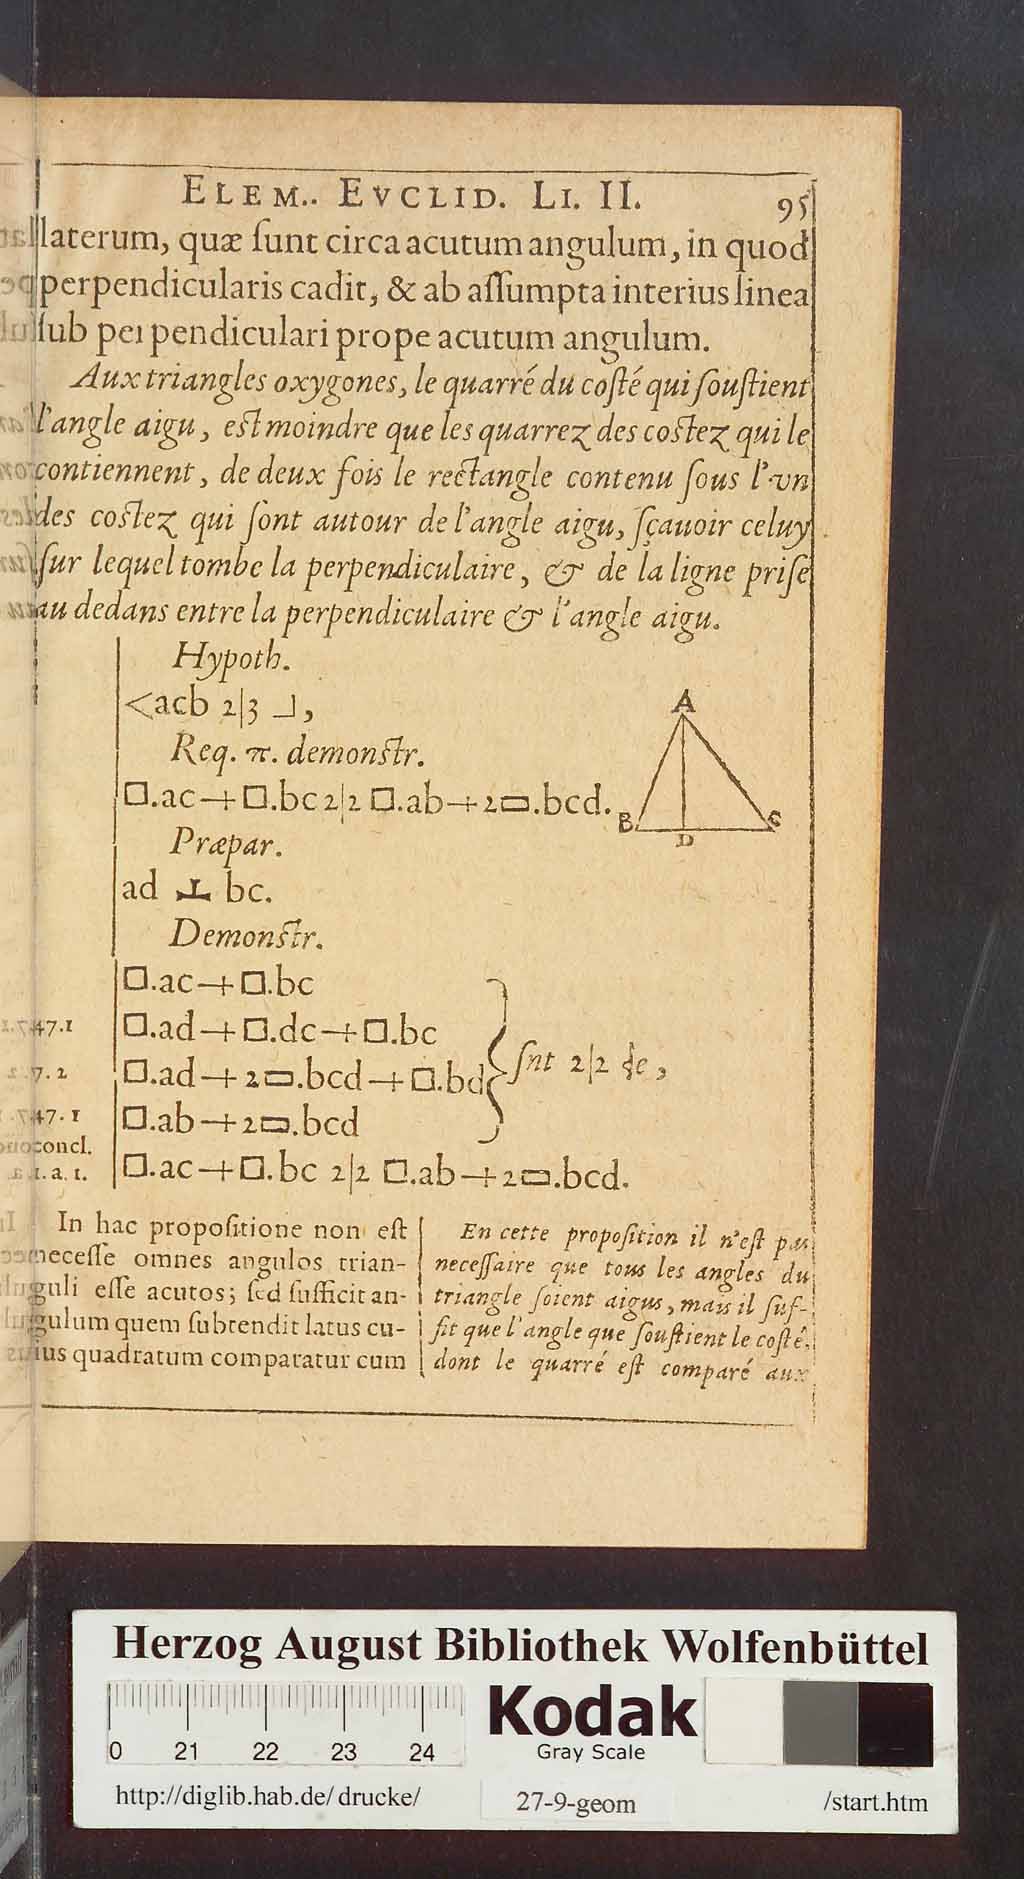 ELEM.. EVCLID. LI. II. 95
laterum, quæ ſunt circa acutum angulum, in quod
perpendicularis cadit, & ab aſſumpta interius linea
ſub perpendiculari prope acutum angulum.
Aux triangles oxygones, le quarré du coſté qui ſouſtient
l'angle aigu, eſt moindre que les quarrez des coſtez qui le
contiennent, de deux fois le rectangle contenu ſous l'vn
des coſtez qui ſont autour de l'angle aigu, ſçauoir celuy
ſur lequel tombe la perpendiculaire, & de la ligne priſe
au dedans entre la perpendiculaire & l'angle aigu.
Hypoth.
<acb 2|3 ⅃,
Req. π. demonſtr.
□.ac + □.bc 2|2 □.ab + 2▭.bcd.
Præpar.
ad ⊥ bc.
Demonſtr.
A
B
C
D
□.ac + □.bc
47.1 □.ad + □.dc + □.bc
7.2 □.ad + 2▭.bcd + □.bd
ſnt 2|2 ſe,
47.1 □.ab + 2▭.bcd
concl.
1. a. 1. □.ac + □.bc 2|2 □.ab + 2▭.bcd.
In hac propoſitione non eſt
neceſſe omnes angulos trian-
guli eſſe acutos; ſed ſufficit an-
gulum quem ſubtendit latus cu-
ius quadratum comparatur cum
En cette propoſition il n'eſt pas
neceſſaire que tous les angles du
triangle ſoient aigus, mais il ſuf-
fit que l'angle que ſouſtient le coſté,
dont le quarré eſt comparé aux
Herzog August Bibliothek Wolfenbüttel
0 21 22 23 24
Kodak
Gray Scale
http://diglib.hab.de/drucke/ 27-9-geom /start.htm